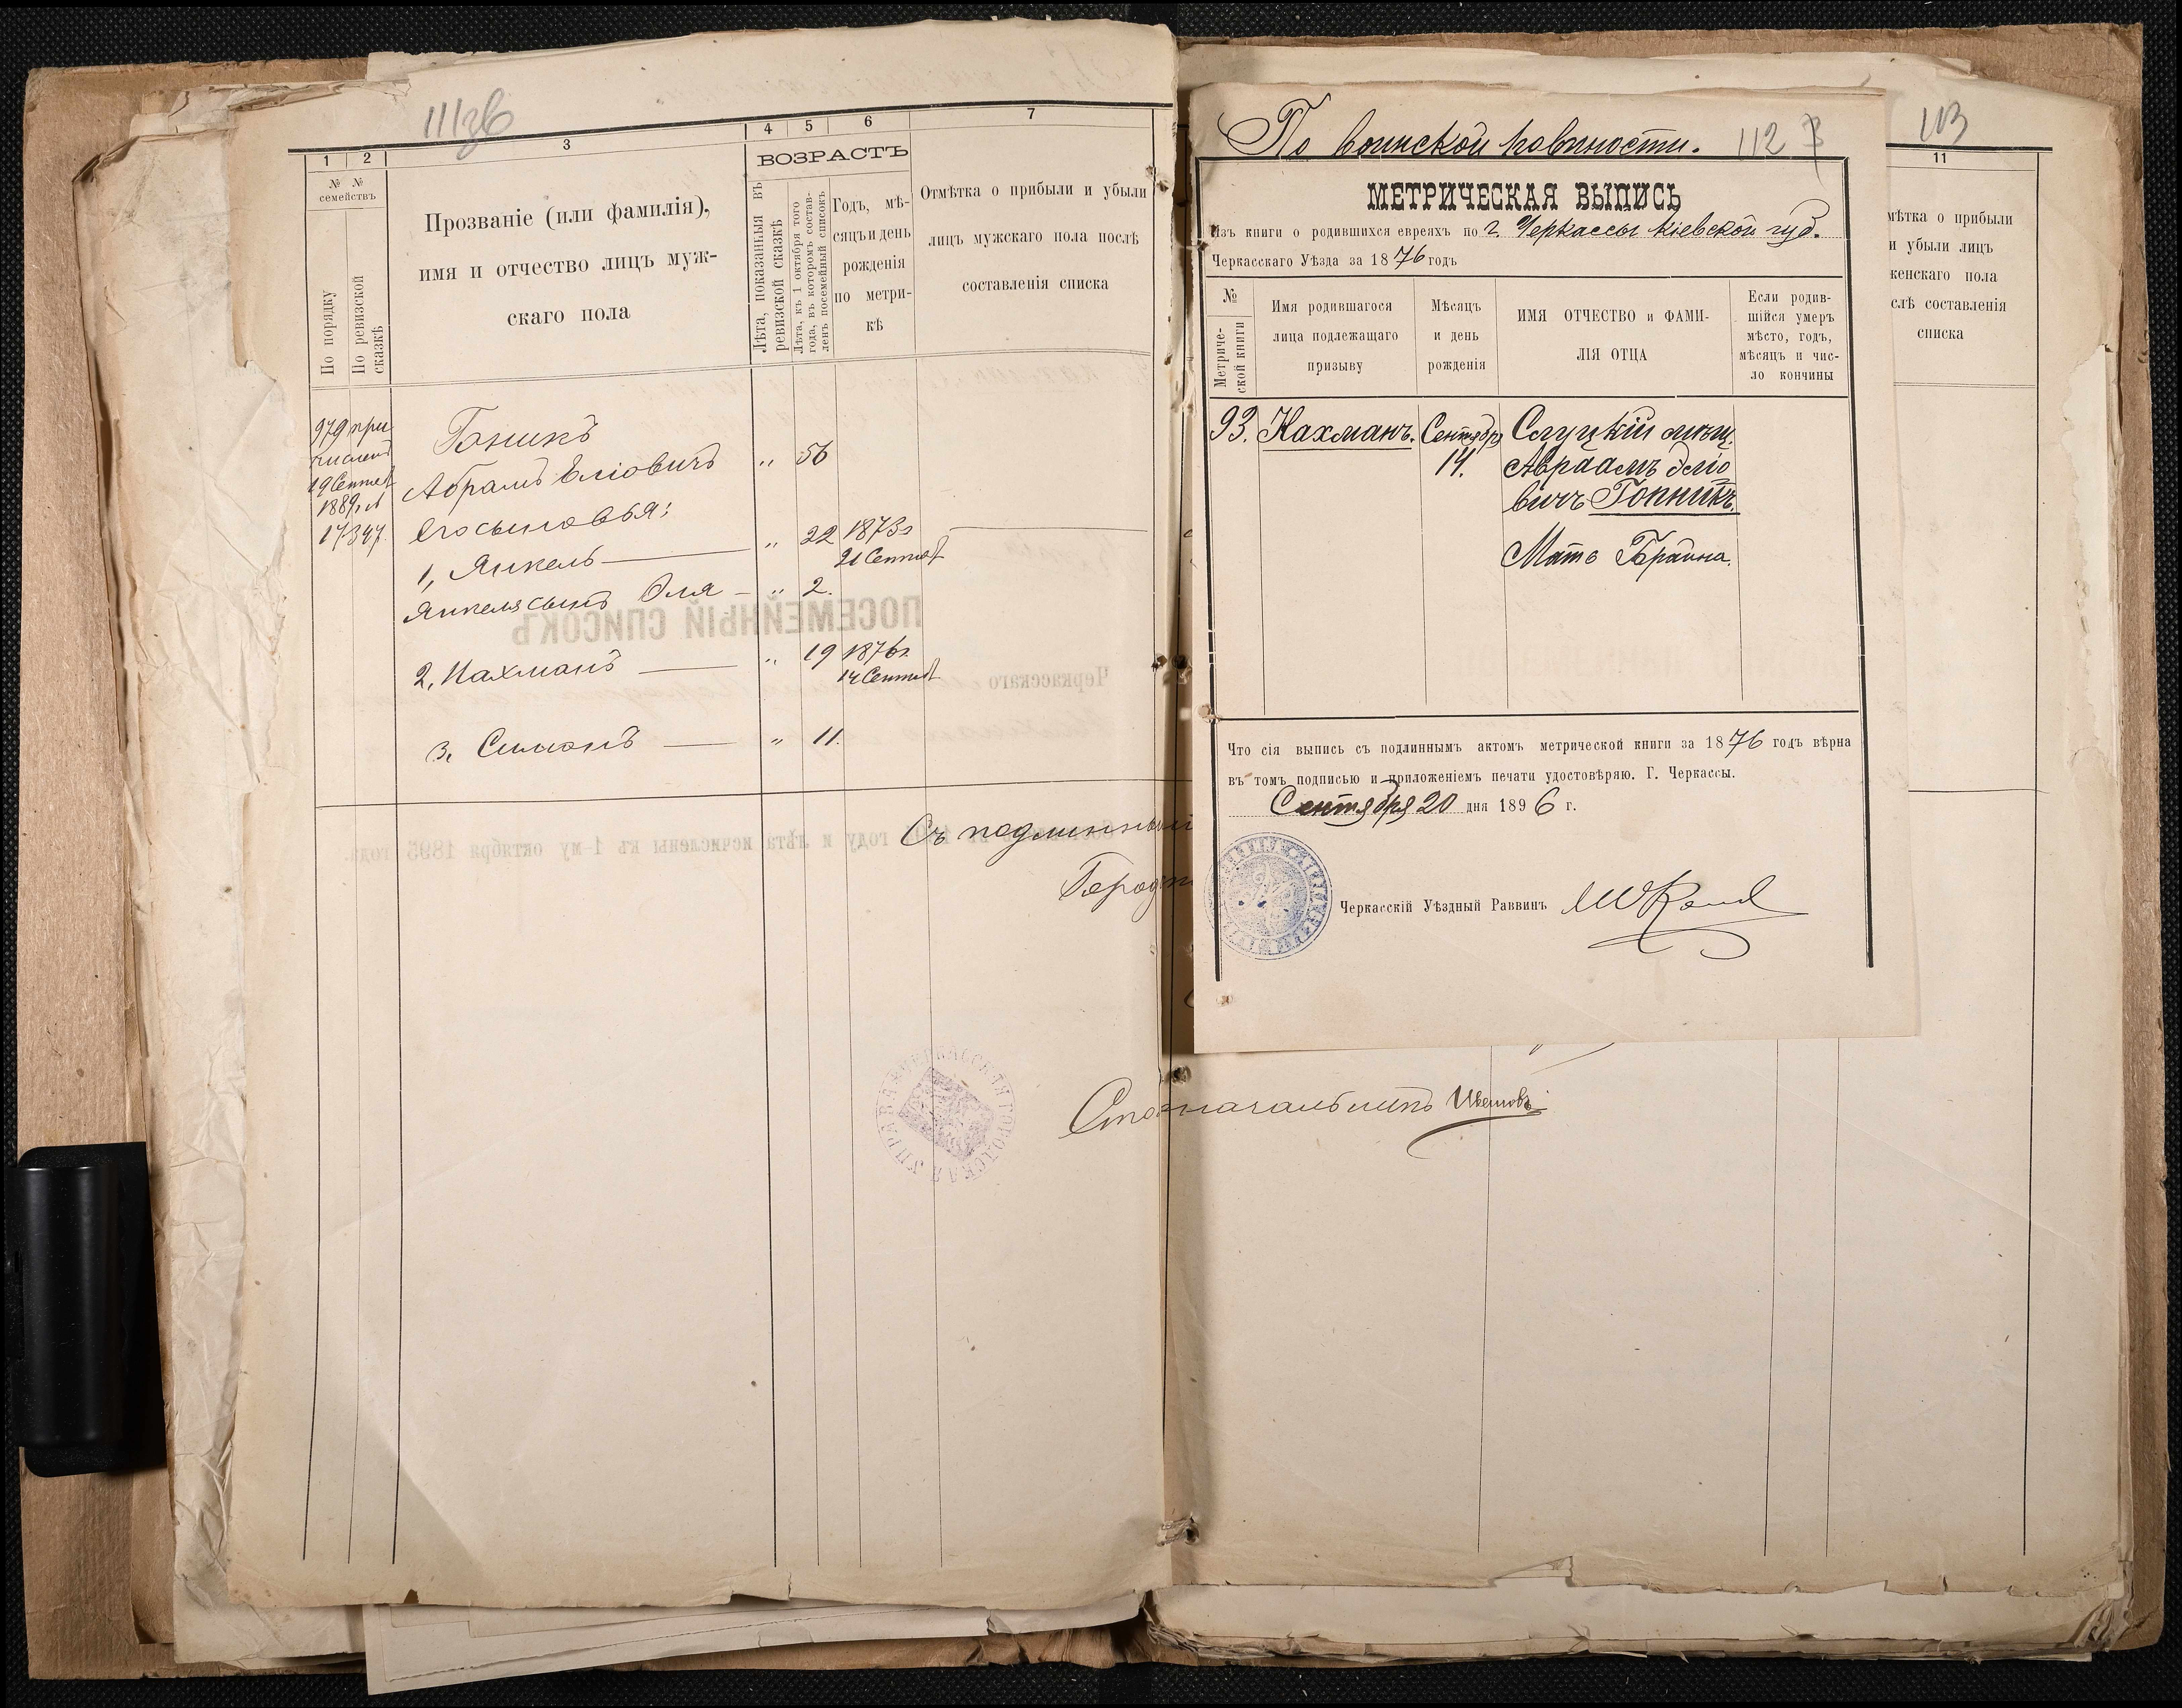 111 зв
1
2
3
4
5
6
7
№ №
семействъ
По порядку
По ревизской
сказкѣ
Прозваніе (или фамилія),
имя и отчество лицъ муж-
скаго пола
ВОЗРАСТЪ
Лѣта, показанныя въ
ревизской сказкѣ
Лѣта, къ 1 октября того
года, въ которомъ состав-
ленъ посемейный списокъ
Годъ, мѣ-
сяцъ и день
рожденія
по метри-
кѣ
Отмѣтка о прибыли и убыли
лицъ мужскаго пола послѣ
составленія списка
979 при
численъ
19 Сентяб
1889 г. №
17347.
Гоникъ
Абрамъ Еліовичъ " 56
его сыновья:
1, Янкель " 22 1873 г
21 Сентяб
Янкеля сынъ Эля " 2.
2, Нахманъ " 19 1876 г.
14 Сентяб
3, Симонъ " 11.
ПОСЕМЕЙНЫЙ СПИСОКЪ
Черкасскаго
году и лѣта исчислены къ 1-му октября 1895 года.
Съ подлинным
Город
Столоначальникъ
ЧЕРКАССКАЯ ГОРОДСКАЯ УПРАВА
По воинской повинности.
112
МЕТРИЧЕСКАЯ ВЫПИСЬ
Изъ книги о родившихся евреяхъ по г. Черкассы Кіевской губ.
Черкасскаго Уѣзда за 1876 годъ
№
Метриче-
ской книги
Имя родившагося
лица подлежащаго
призыву
Мѣсяцъ
и день
рожденія
ИМЯ ОТЧЕСТВО и ФАМИ-
ЛІЯ ОТЦА
Если родив-
шійся умеръ
мѣсто, годъ,
мѣсяцъ и чис-
ло кончины
93. Нахманъ. Сентябр Слуцкій мѣщ.
14. Авраамъ Эліо
вичъ Гопникъ.
Мать Брайна.
Что сія выпись съ подлиннымъ актомъ метрической книги за 1876 годъ вѣрна
въ томъ подписью и приложеніемъ печати удостовѣряю. Г. Черкассы.
Сентября 20 дня 1896 г.
Черкасскій Уѣздный Раввинъ
113
11
мѣтка о прибыли
и убыли лицъ
женскаго пола
слѣ составленія
списка